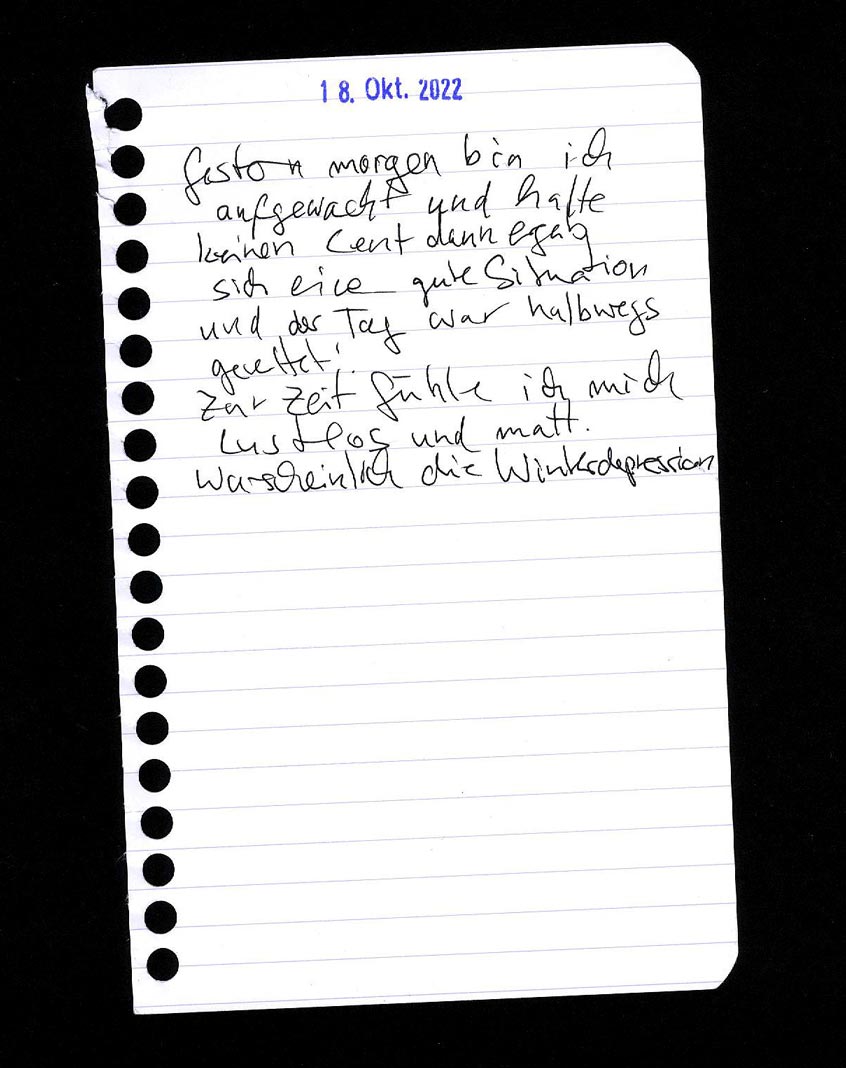 18. Okt. 2022
Gestern morgen bin ich
aufgewacht und hatte
keinen Cent dann ergab
sich eine gute Situation
und der Tag war halbwegs
gerettet!
Zur Zeit fühle ich mich
Lustlos und matt.
Warscheinlich die Winterdepression